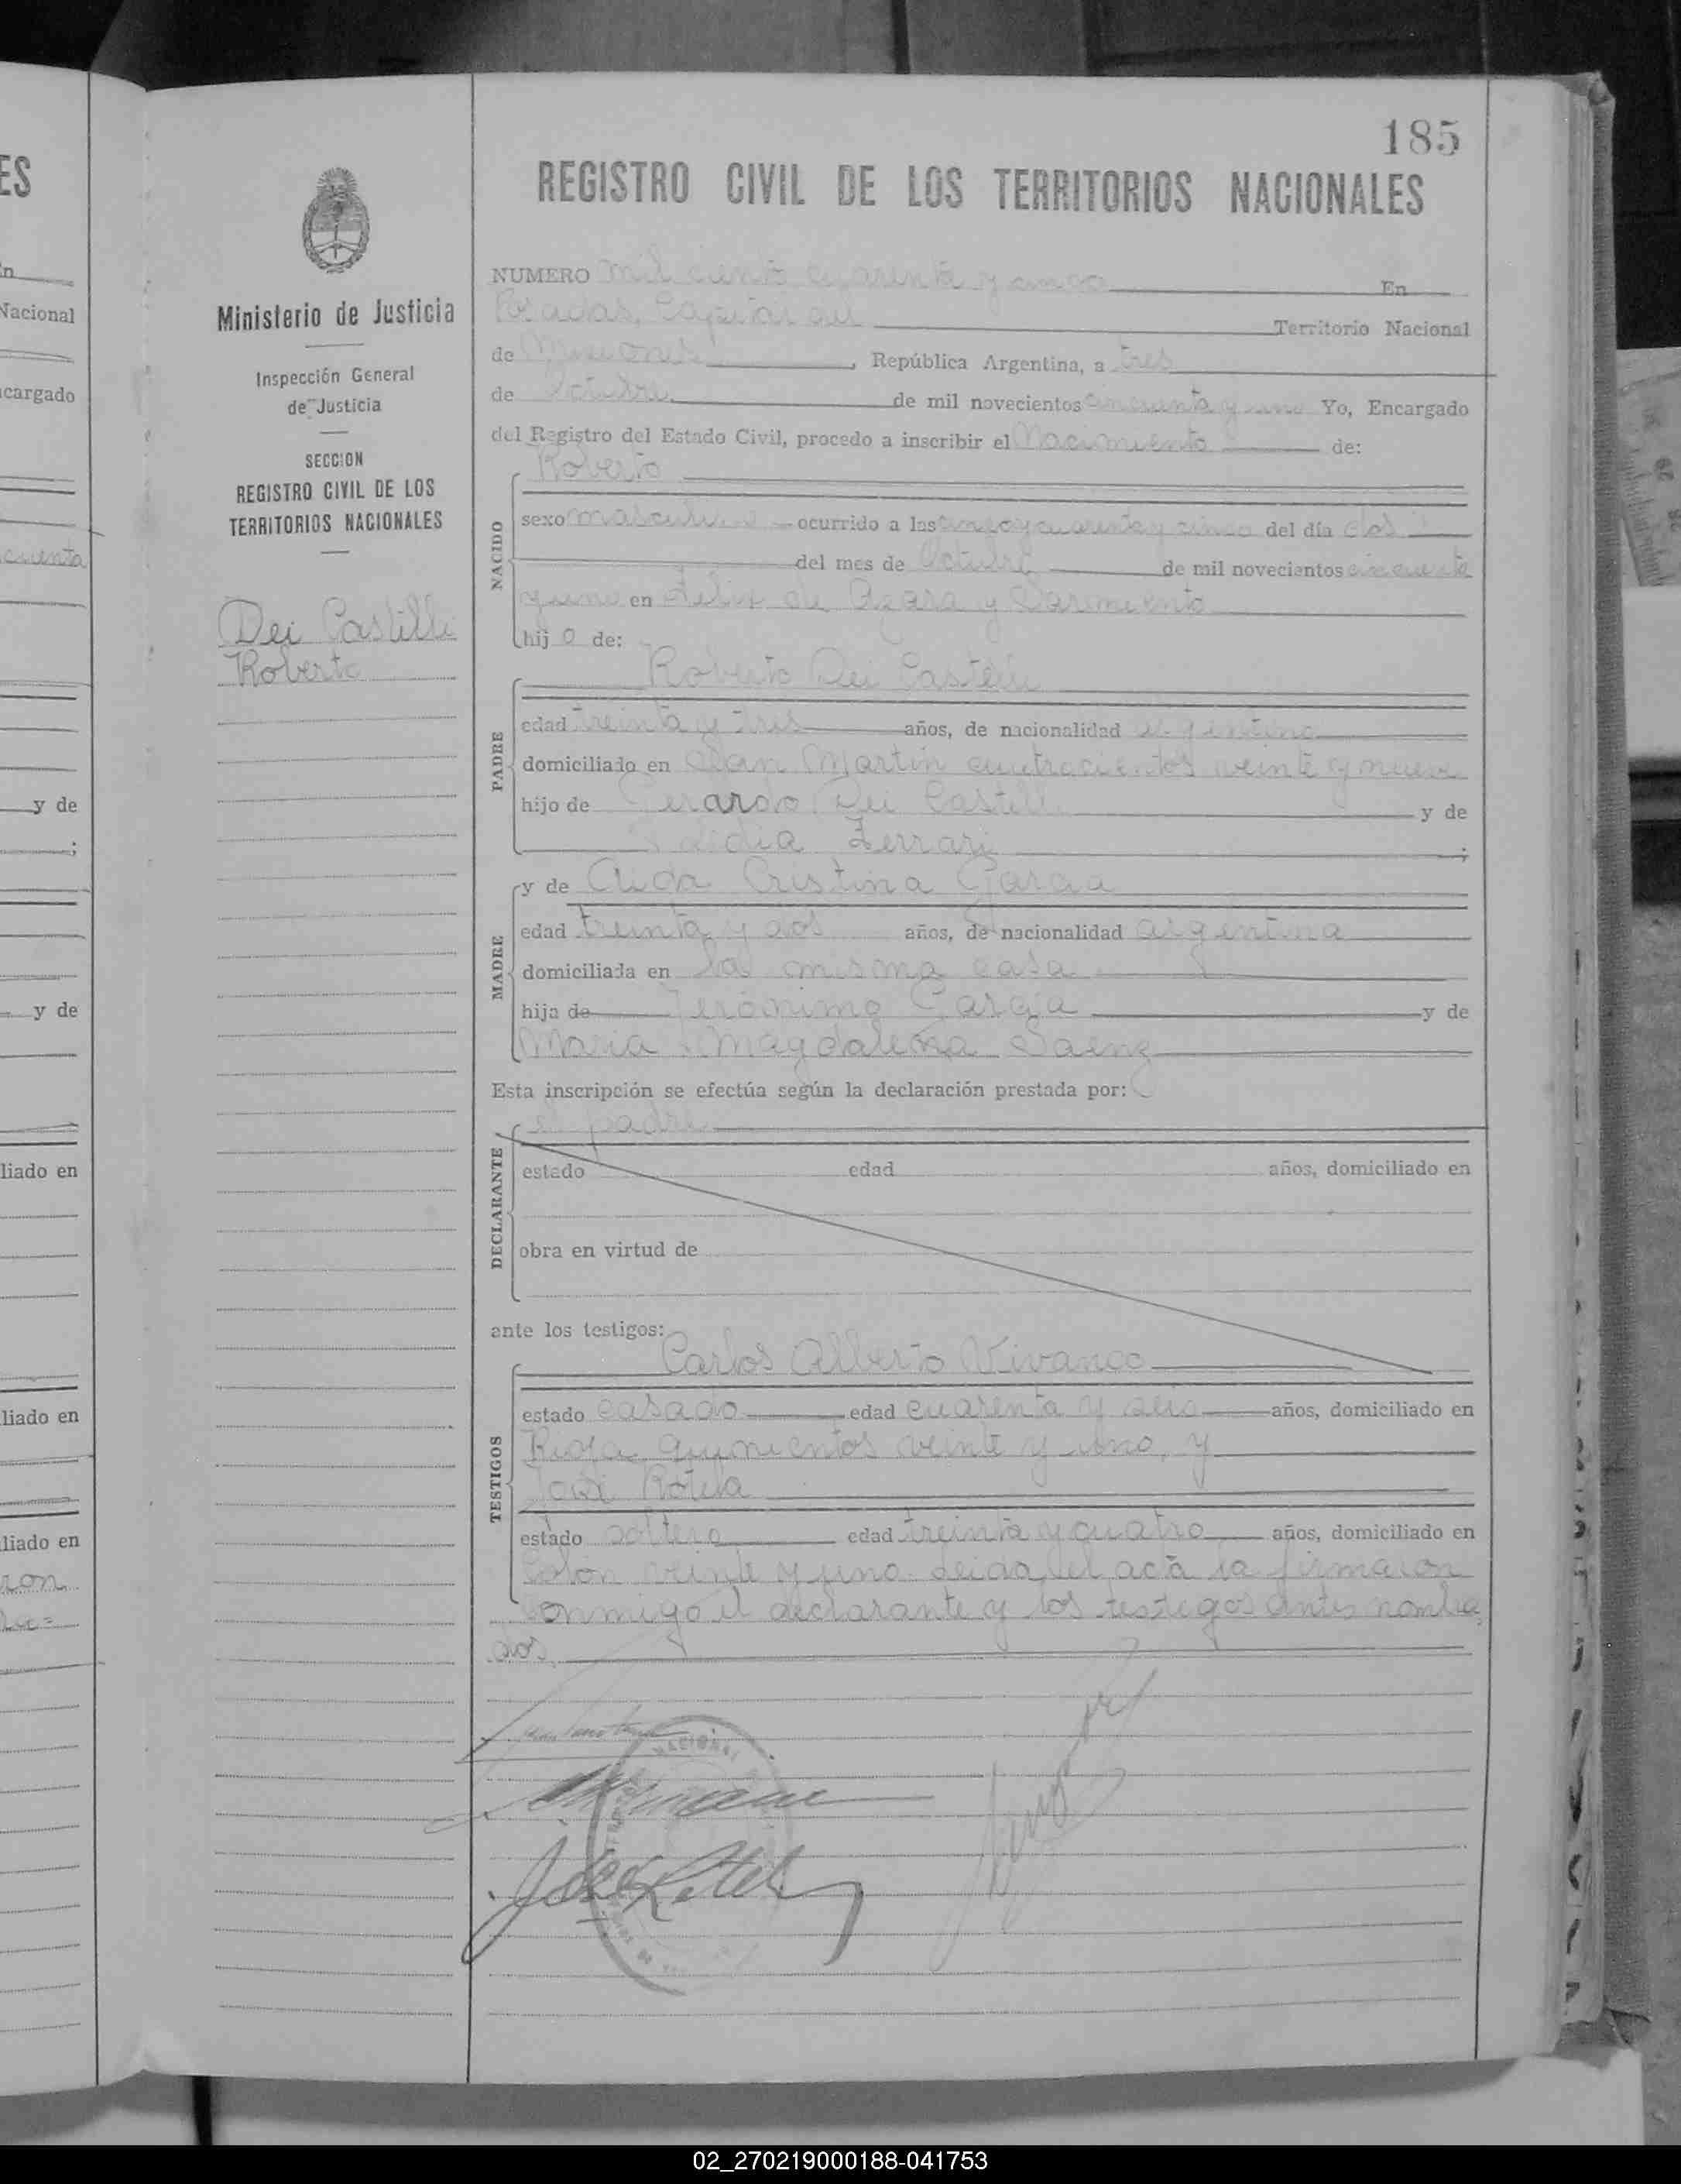 185
REGISTRO CIVIL DE LOS TERRITORIOS NACIONALES
ES
n
Nacional
cargado
cuenta
y de
;
y de
liado en
liado en
liado en
ron
Ministerio de Justicia
Inspección General
de Justicia
SECCION
REGISTRO CIVIL DE LOS
TERRITORIOS NACIONALES
Dei Castelli
Roberto
NUMERO mil ciento cuarenta y cinco En
Posadas, Capital del Territorio Nacional
de Misiones, República Argentina, a tres
de Octubre de mil novecientos cincuenta y uno Yo, Encargado
del Registro del Estado Civil, procedo a inscribir el Nacimiento de:
Roberto
NACIDO
sexo masculino ocurrido a las cinco y cuarenta y cinco del día dos
del mes de Octubre de mil novecientos cincuenta
y uno en Félix de Azara y Sarmiento
hijo de:
Roberto Dei Castelli
PADRE
edad treinta y tres años, de nacionalidad argentino
domiciliado en San Martín cuatrocientos veinte y nueve
hijo de Gerardo Dei Castelli y de
Lidia Ferrari ;
MADRE
y de Aida Cristina Garcia
edad treinta y dos años, de nacionalidad argentina
domiciliada en la misma casa
hija de Jerónimo García y de
Maria Magdalena Saenz
Esta inscripción se efectúa según la declaración prestada por:
el padre
DECLARANTE
estado edad años, domiciliado en
obra en virtud de
ante los testigos:
Carlos Alberto Vivanco
TESTIGOS
estado casado edad cuarenta y seis años, domiciliado en
Rioja quinientos veinte y uno, y
José Rotela
estado soltero edad treinta y cuatro años, domiciliado en
Colón veinte y uno. Leida el acta la firmaron
conmigo el declarante y los testigos antes nombra
dos.
NACIONAL
José Rotela
02_270219000188-041753